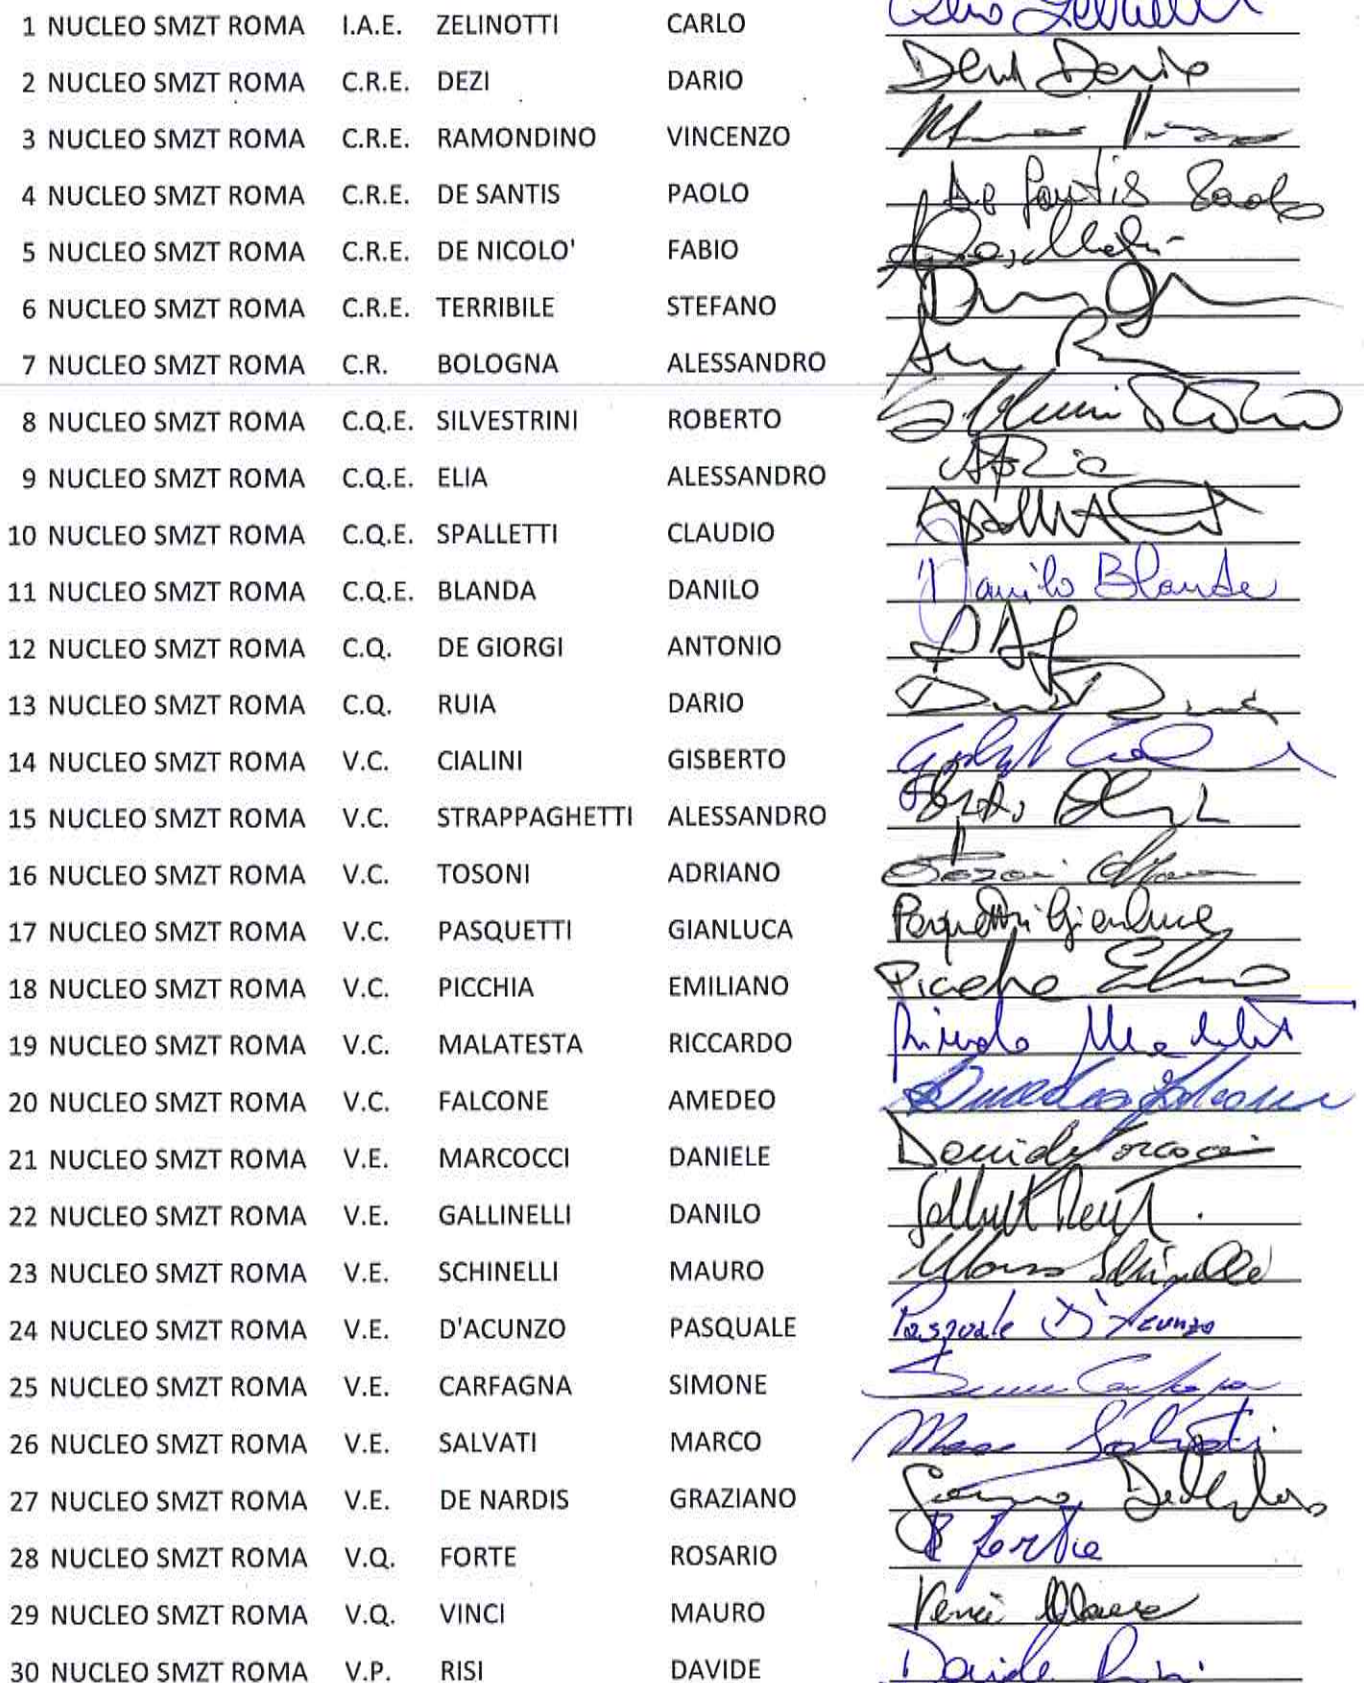 1 NUCLEO SMZT ROMA I.A.E. ZELINOTTI CARLO
2 NUCLEO SMZT ROMA C.R.E. DEZI DARIO Dezi Dario
3 NUCLEO SMZT ROMA C.R.E. RAMONDINO VINCENZO
4 NUCLEO SMZT ROMA C.R.E. DE SANTIS PAOLO De Santis Paolo
5 NUCLEO SMZT ROMA C.R.E. DE NICOLO' FABIO
6 NUCLEO SMZT ROMA C.R.E. TERRIBILE STEFANO
7 NUCLEO SMZT ROMA C.R. BOLOGNA ALESSANDRO
8 NUCLEO SMZT ROMA C.Q.E. SILVESTRINI ROBERTO
9 NUCLEO SMZT ROMA C.Q.E. ELIA ALESSANDRO
10 NUCLEO SMZT ROMA C.Q.E. SPALLETTI CLAUDIO
11 NUCLEO SMZT ROMA C.Q.E. BLANDA DANILO Danilo Blanda
12 NUCLEO SMZT ROMA C.Q. DE GIORGI ANTONIO
13 NUCLEO SMZT ROMA C.Q. RUIA DARIO
14 NUCLEO SMZT ROMA V.C. CIALINI GISBERTO
15 NUCLEO SMZT ROMA V.C. STRAPPAGHETTI ALESSANDRO
16 NUCLEO SMZT ROMA V.C. TOSONI ADRIANO
17 NUCLEO SMZT ROMA V.C. PASQUETTI GIANLUCA Pasquetti Gianluca
18 NUCLEO SMZT ROMA V.C. PICCHIA EMILIANO
19 NUCLEO SMZT ROMA V.C. MALATESTA RICCARDO
20 NUCLEO SMZT ROMA V.C. FALCONE AMEDEO Amedeo Falcone
21 NUCLEO SMZT ROMA V.E. MARCOCCI DANIELE
22 NUCLEO SMZT ROMA V.E. GALLINELLI DANILO
23 NUCLEO SMZT ROMA V.E. SCHINELLI MAURO Mauro Schinelli
24 NUCLEO SMZT ROMA V.E. D'ACUNZO PASQUALE Pasquale D'Acunzo
25 NUCLEO SMZT ROMA V.E. CARFAGNA SIMONE
26 NUCLEO SMZT ROMA V.E. SALVATI MARCO Marco Salvati
27 NUCLEO SMZT ROMA V.E. DE NARDIS GRAZIANO
28 NUCLEO SMZT ROMA V.Q. FORTE ROSARIO R Forte
29 NUCLEO SMZT ROMA V.Q. VINCI MAURO Vinci Mauro
30 NUCLEO SMZT ROMA V.P. RISI DAVIDE Davide Risi